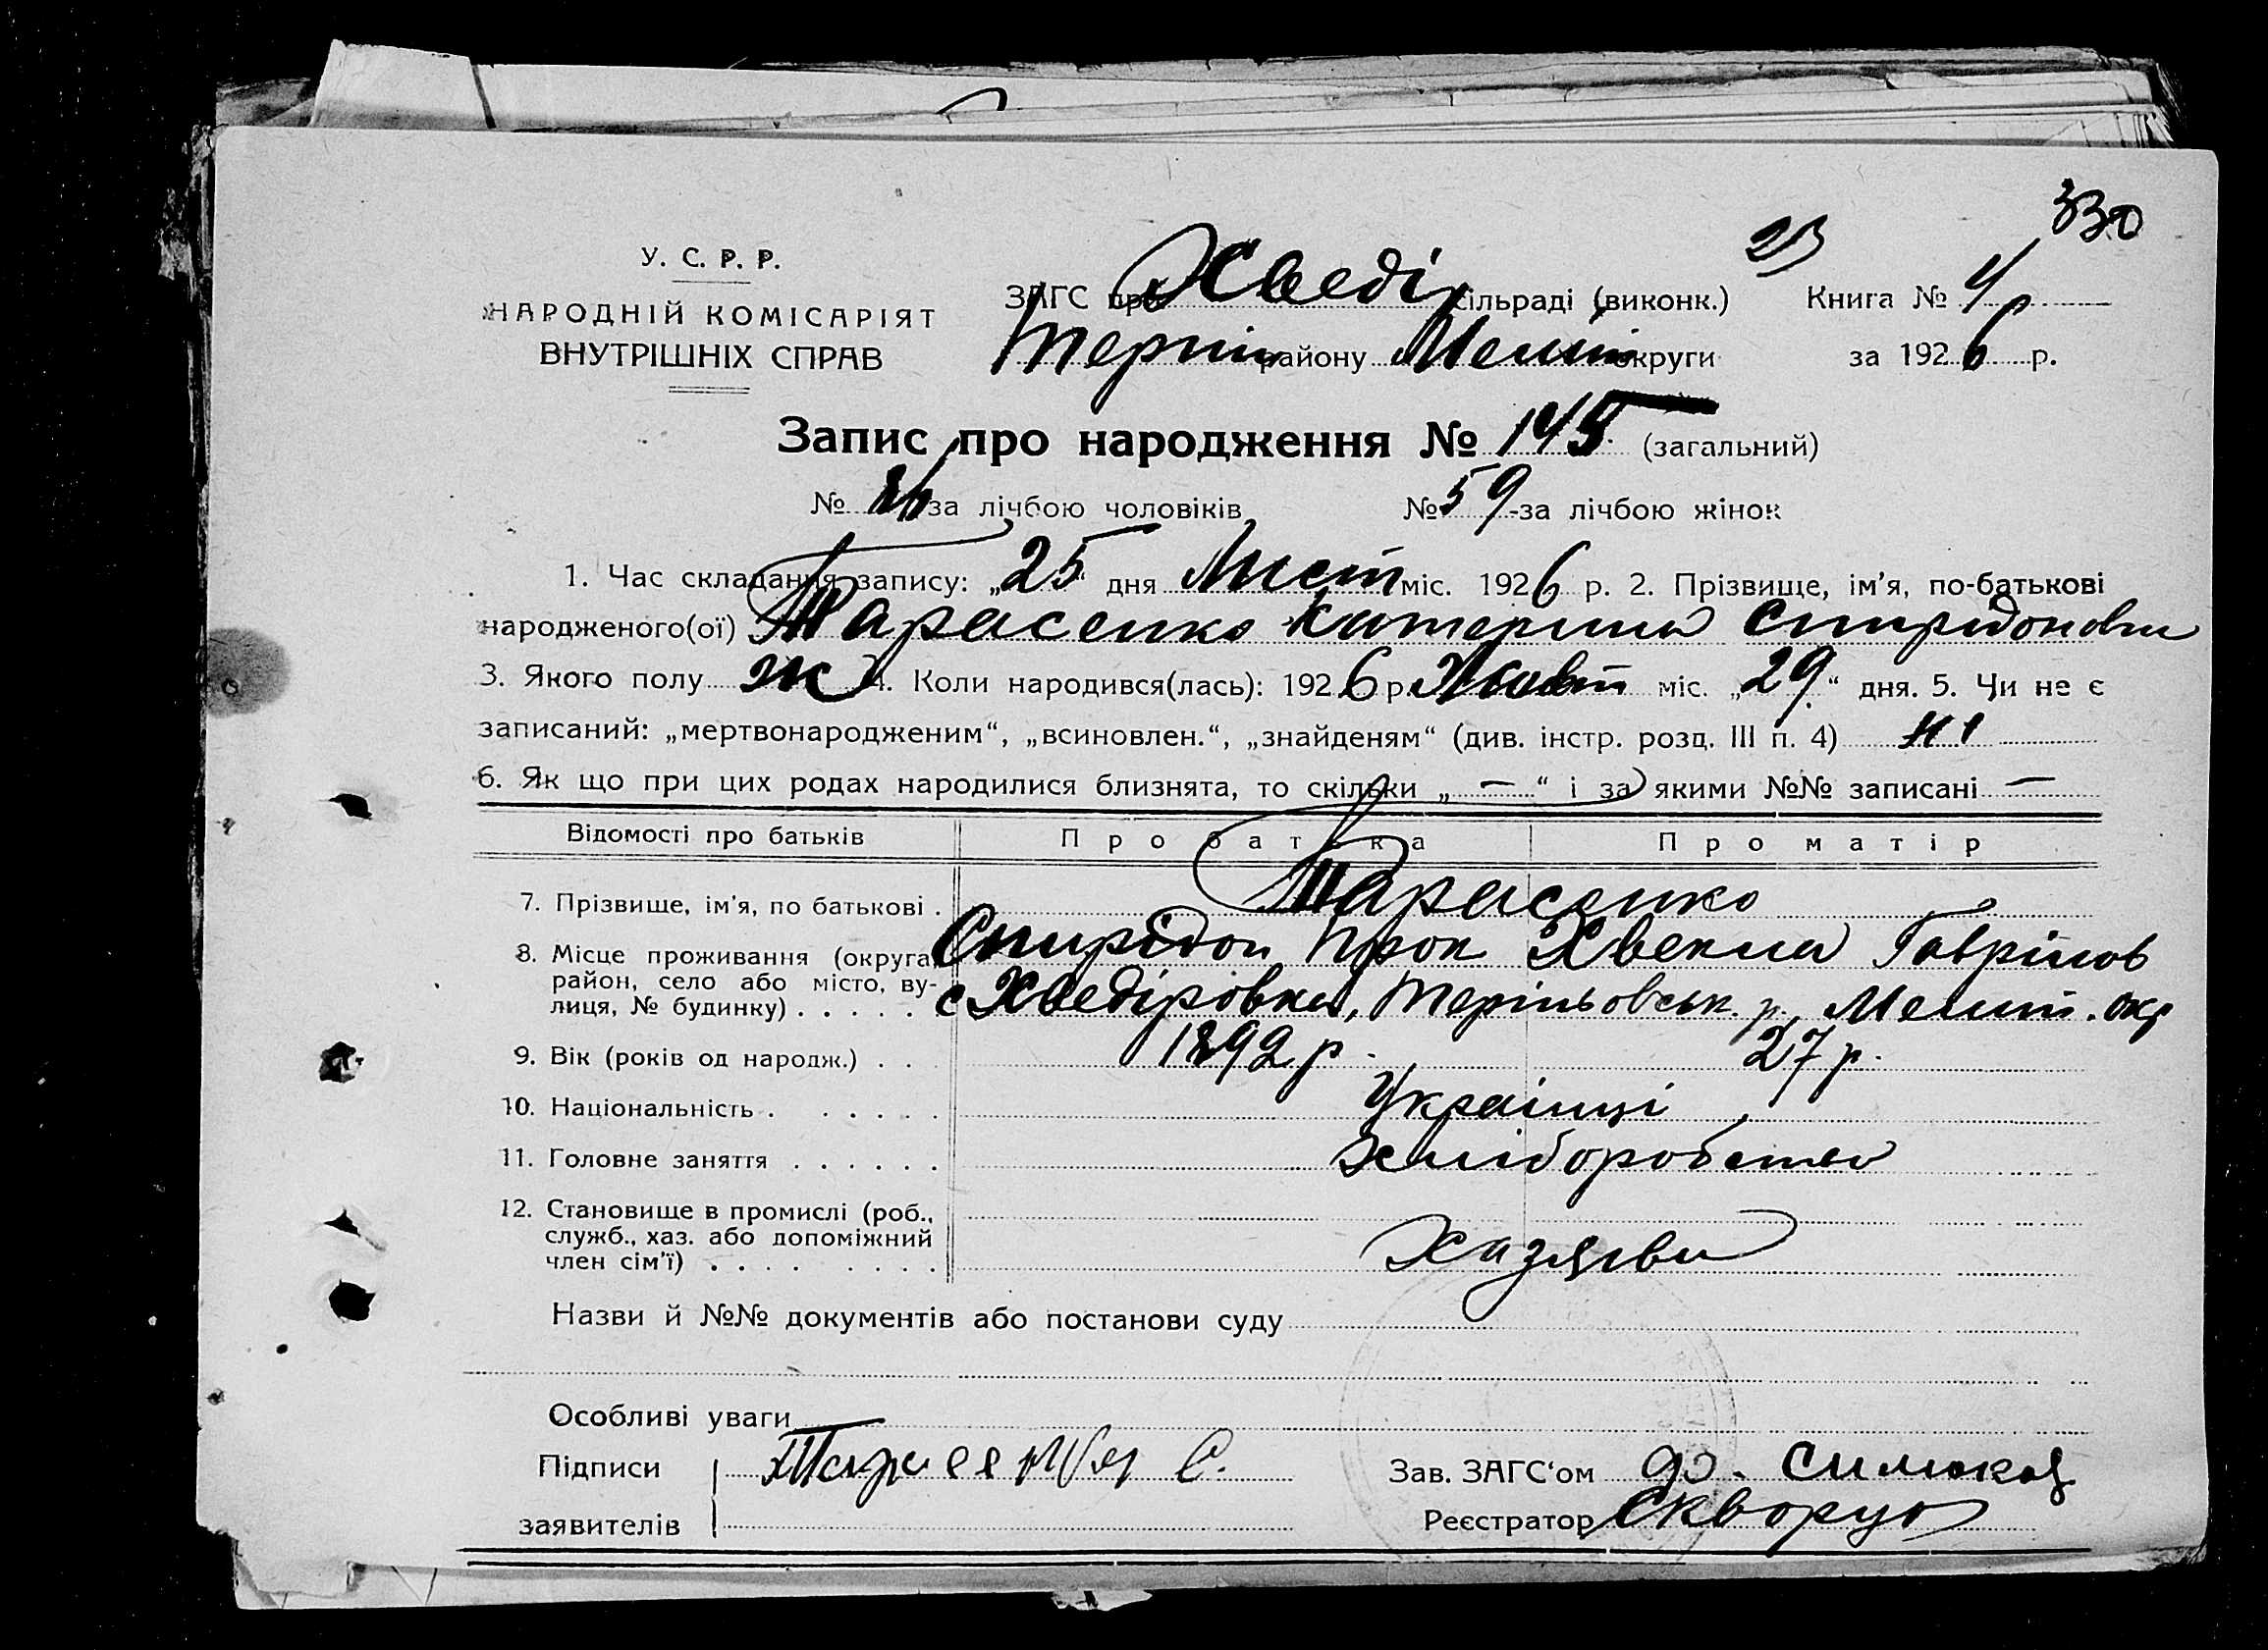 330
23
У. С. Р. Р.
НАРОДНІЙ КОМІСАРІЯТ
ВНУТРІШНІХ СПРАВ
ЗАГС при Хведір сільраді (виконк.) Книга № 4
Терпін району Меліт округи за 1926 р.
Запис про народження № 145 (загальний)
№ 86 за лічбою чоловіків № 59 за лічбою жінок
1. Час складання запису: „25“ дня Лист міс. 1926 р. 2. Прізвище, ім’я, по-батькові
народженого(ої) Тарасенко Катерина Спиридоновна
3. Якого полу ж 4. Коли народився(лась): 1926 р. Жовт міс. „29“ дня. 5. Чи не є
записаний: „мертвонародженим“, „всиновлен.“, „знайденям“ (див. інстр. розд. III п. 4) ні
6. Як що при цих родах народилися близнята, то скільки „—“ і за якими №№ записані —
Відомості про батьків Про батька Про матір
7. Прізвище, ім’я, по батькові . Тарасенко
Спирідон Прок Хвекла Гаврілов
8. Місце проживання (округа,
район, село або місто, ву-
лиця, № будинку) . . . . . с Хведірівка, Терпіньовськ. р., Меліт. окр
9. Вік (років од народж.) . . 1892 р. 27 р.
10. Національність . . . . . . Українці
11. Головне заняття . . . . . . Хліборобство
12. Становище в промислі (роб.,
служб., хаз. або допоміжний
член сім’ї) . . . . . . . . Хазяєва
Назви й №№ документів або постанови суду
Особливі уваги
Підписи Зав. ЗАГС‘ом
заявителів Реєстратор Скворцо